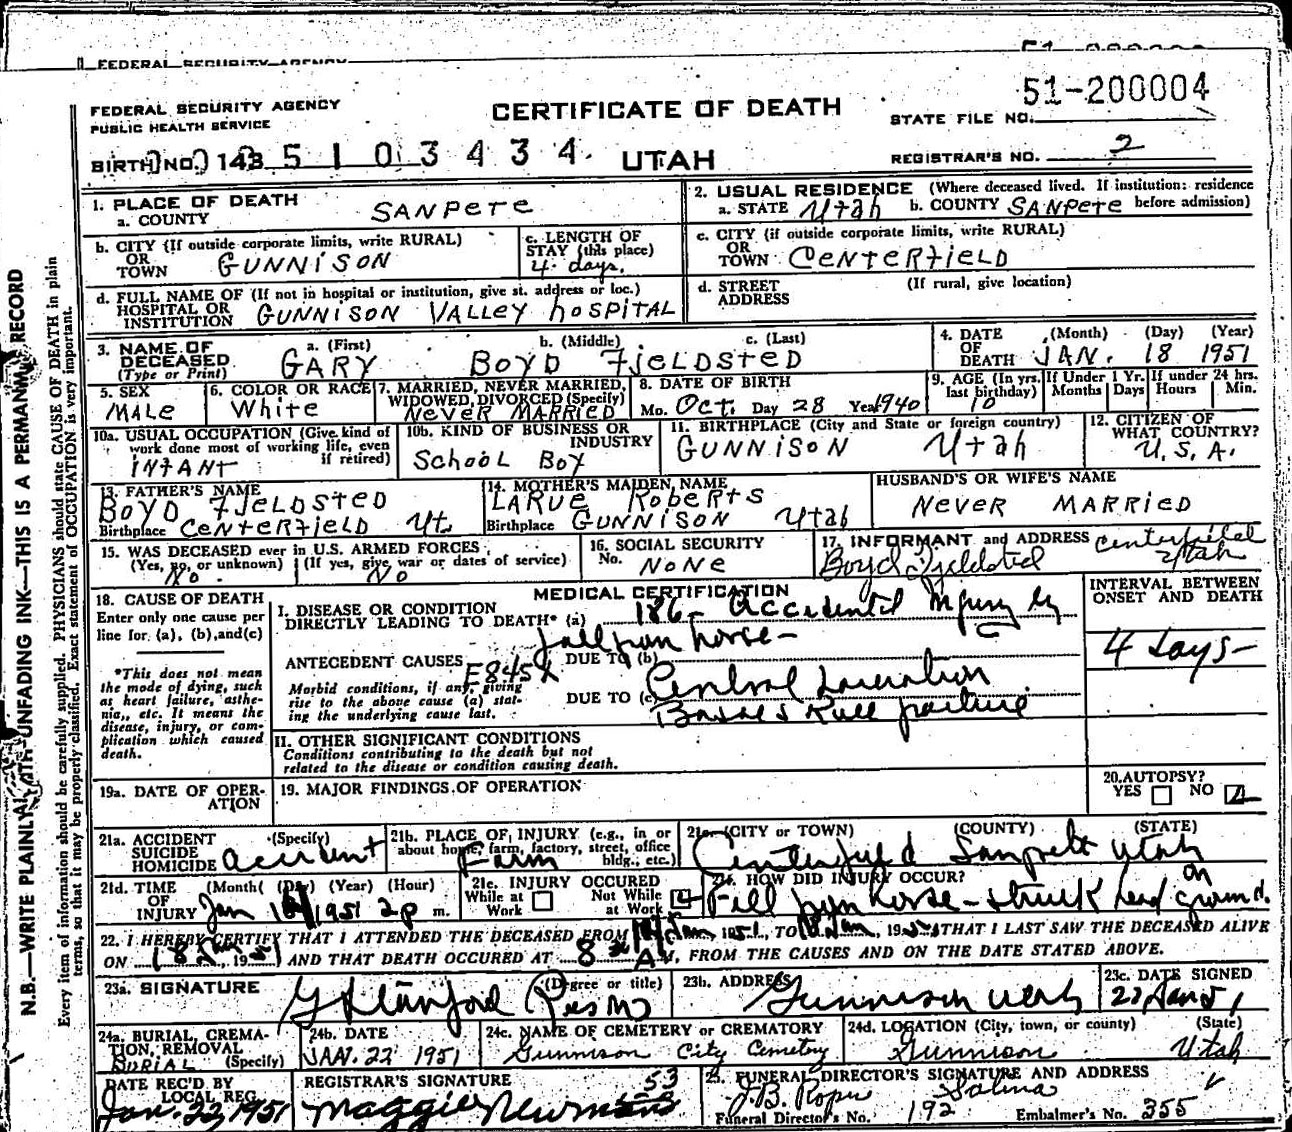 FEDERAL SECURITY AGENCY
FEDERAL SECURITY AGENCY
PUBLIC HEALTH SERVICE
CERTIFICATE OF DEATH
51-200004
STATE FILE NO.
BIRTH NO. 143 5 1 0 3 4 3 4
UTAH
REGISTRAR'S NO. 2
1. PLACE OF DEATH
a. COUNTY SANPETE
2. USUAL RESIDENCE (Where deceased lived. If institution: residence before admission)
a. STATE Utah b. COUNTY SANPETE
b. CITY (If outside corporate limits, write RURAL) OR TOWN GUNNISON
c. LENGTH OF STAY (this place) 4 days.
c. CITY (if outside corporate limits, write RURAL) OR TOWN CENTERFIELD
d. FULL NAME OF (If not in hospital or institution, give st. address or loc.) HOSPITAL OR INSTITUTION GUNNISON VALLEY HOSPITAL
d. STREET ADDRESS (If rural, give location)
3. NAME OF DECEASED (Type or Print)
a. (First) b. (Middle) c. (Last)
GARY BOYD FJELDSTED
4. DATE OF DEATH (Month) (Day) (Year)
JAN. 18 1951
5. SEX MALE
6. COLOR OR RACE White
7. MARRIED, NEVER MARRIED, WIDOWED, DIVORCED (Specify) NEVER MARRIED
8. DATE OF BIRTH Mo. Oct. Day 28 Year 1940
9. AGE (In yrs. last birthday) 10
If Under 1 Yr. Months Days
If under 24 hrs. Hours Min.
10a. USUAL OCCUPATION (Give kind of work done most of working life, even if retired) INFANT
10b. KIND OF BUSINESS OR INDUSTRY School Boy
11. BIRTHPLACE (City and State or foreign country) GUNNISON Utah
12. CITIZEN OF WHAT COUNTRY? U.S.A.
13. FATHER'S NAME BOYD FJELDSTED
Birthplace CENTERFIELD Ut.
14. MOTHER'S MAIDEN NAME LARUE Roberts
Birthplace GUNNISON Utah
HUSBAND'S OR WIFE'S NAME
NEVER MARRIED
15. WAS DECEASED ever in U.S. ARMED FORCES
(Yes, no, or unknown) (If yes, give war or dates of service)
No. No
16. SOCIAL SECURITY No. NONE
17. INFORMANT and ADDRESS Centerfield Utah
Boyd Fjeldsted
18. CAUSE OF DEATH
Enter only one cause per line for (a), (b), and (c)
*This does not mean the mode of dying, such as heart failure, asthenia,, etc. It means the disease, injury, or complication which caused death.
MEDICAL CERTIFICATION
I. DISEASE OR CONDITION DIRECTLY LEADING TO DEATH* (a) 186- Accidental Injury by
fall from horse-
ANTECEDENT CAUSES E845X
Morbid conditions, if any, giving rise to the above cause (a) stating the underlying cause last.
DUE TO (b)
DUE TO (c) Laceration
Basal Skull fracture
INTERVAL BETWEEN ONSET AND DEATH
4 days-
II. OTHER SIGNIFICANT CONDITIONS
Conditions contributing to the death but not related to the disease or condition causing death.
19a. DATE OF OPERATION
19. MAJOR FINDINGS OF OPERATION
20. AUTOPSY?
YES NO
21a. ACCIDENT SUICIDE HOMICIDE (Specify) accident
21b. PLACE OF INJURY (e.g., in or about home, farm, factory, street, office bldg., etc.) Farm
21c. (CITY or TOWN) (COUNTY) (STATE)
Centerfield Sanpete Utah
21d. TIME OF INJURY (Month) (Day) (Year) (Hour)
Jan 1951 2p m.
21e. INJURY OCCURED
While at Work Not While at Work
21f. HOW DID INJURY OCCUR?
Fell from horse - struck head on ground.
22. I HEREBY CERTIFY THAT I ATTENDED THE DECEASED FROM Jan, 1951, TO Jan, 1951 THAT I LAST SAW THE DECEASED ALIVE
ON 18 Jan, 1951 AND THAT DEATH OCCURED AT 8 A M, FROM THE CAUSES AND ON THE DATE STATED ABOVE.
23a. SIGNATURE (Degree or title)
G Stanford Rees MD
23b. ADDRESS Gunnison Utah
23c. DATE SIGNED
22 Jan 51
24a. BURIAL, CREMATION, REMOVAL (Specify) BURIAL
24b. DATE JAN. 22 1951
24c. NAME OF CEMETERY or CREMATORY
Gunnison City Cemetery
24d. LOCATION (City, town, or county) (State)
Gunnison Utah
DATE REC'D. BY LOCAL REG.
Jan. 22, 1951
REGISTRAR'S SIGNATURE 53
Maggie Newman
25. FUNERAL DIRECTOR'S SIGNATURE AND ADDRESS
J.B. Roper Salina
Funeral Director's No. 192 Embalmer's No. 355
N.B.—WRITE PLAINLY WITH UNFADING INK—THIS IS A PERMANENT RECORD
Every item of information should be carefully supplied. PHYSICIANS should state CAUSE OF DEATH in plain
terms, so that it may be properly classified. Exact statement of OCCUPATION is very important.